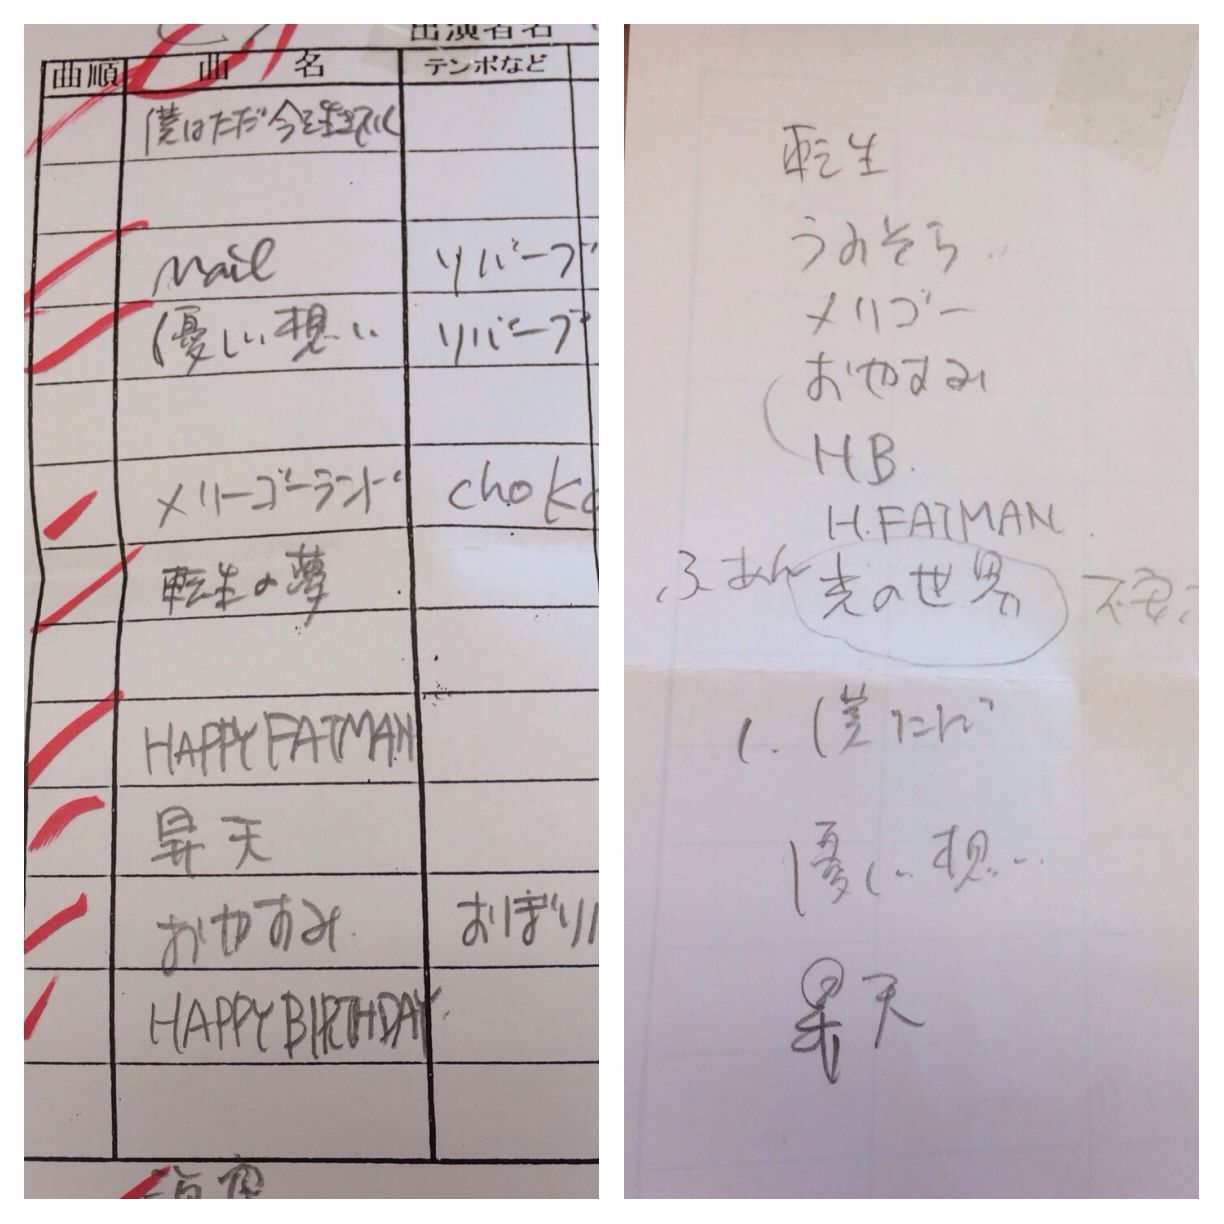 出演者名
曲順 曲 名 テンポなど
僕はただ今を生きていく
mail リバーブ
優しい想い リバーブ
メリーゴーランド choko
転生の夢
HAPPY FATMAN
昇天
おやすみ おぼり
HAPPY BIRTHDAY
海空
転生
うみそら
メリゴー
おやすみ
H B.
H. FATMAN
ふあん 光の世界 不安
1. 僕ただ
優しい想い
昇天